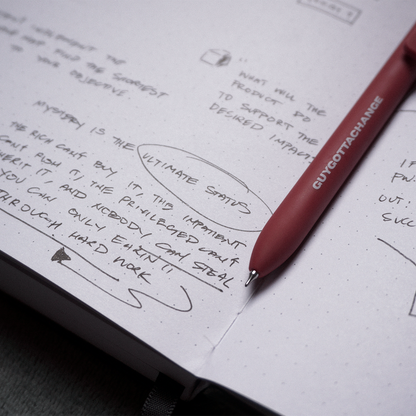 IMPLEMENT THE
FIND THE SHORTEST
TO YOUR OBJECTIVE
WHAT WILL THE
PRODUCT DO
TO SUPPORT THE
DESIRED IMPACT
MYSTERY IS THE ULTIMATE STATUS
THE RICH CAN'T BUY IT, THE IMPATIENT
CAN'T IT, THE PRIVILEGED CAN'T
HERIT IT, AND NOBODY CAN STEAL
YOU CAN ONLY EARN IT
THROUGH HARD WORK
GUYGOTTACHANGE
OUT: